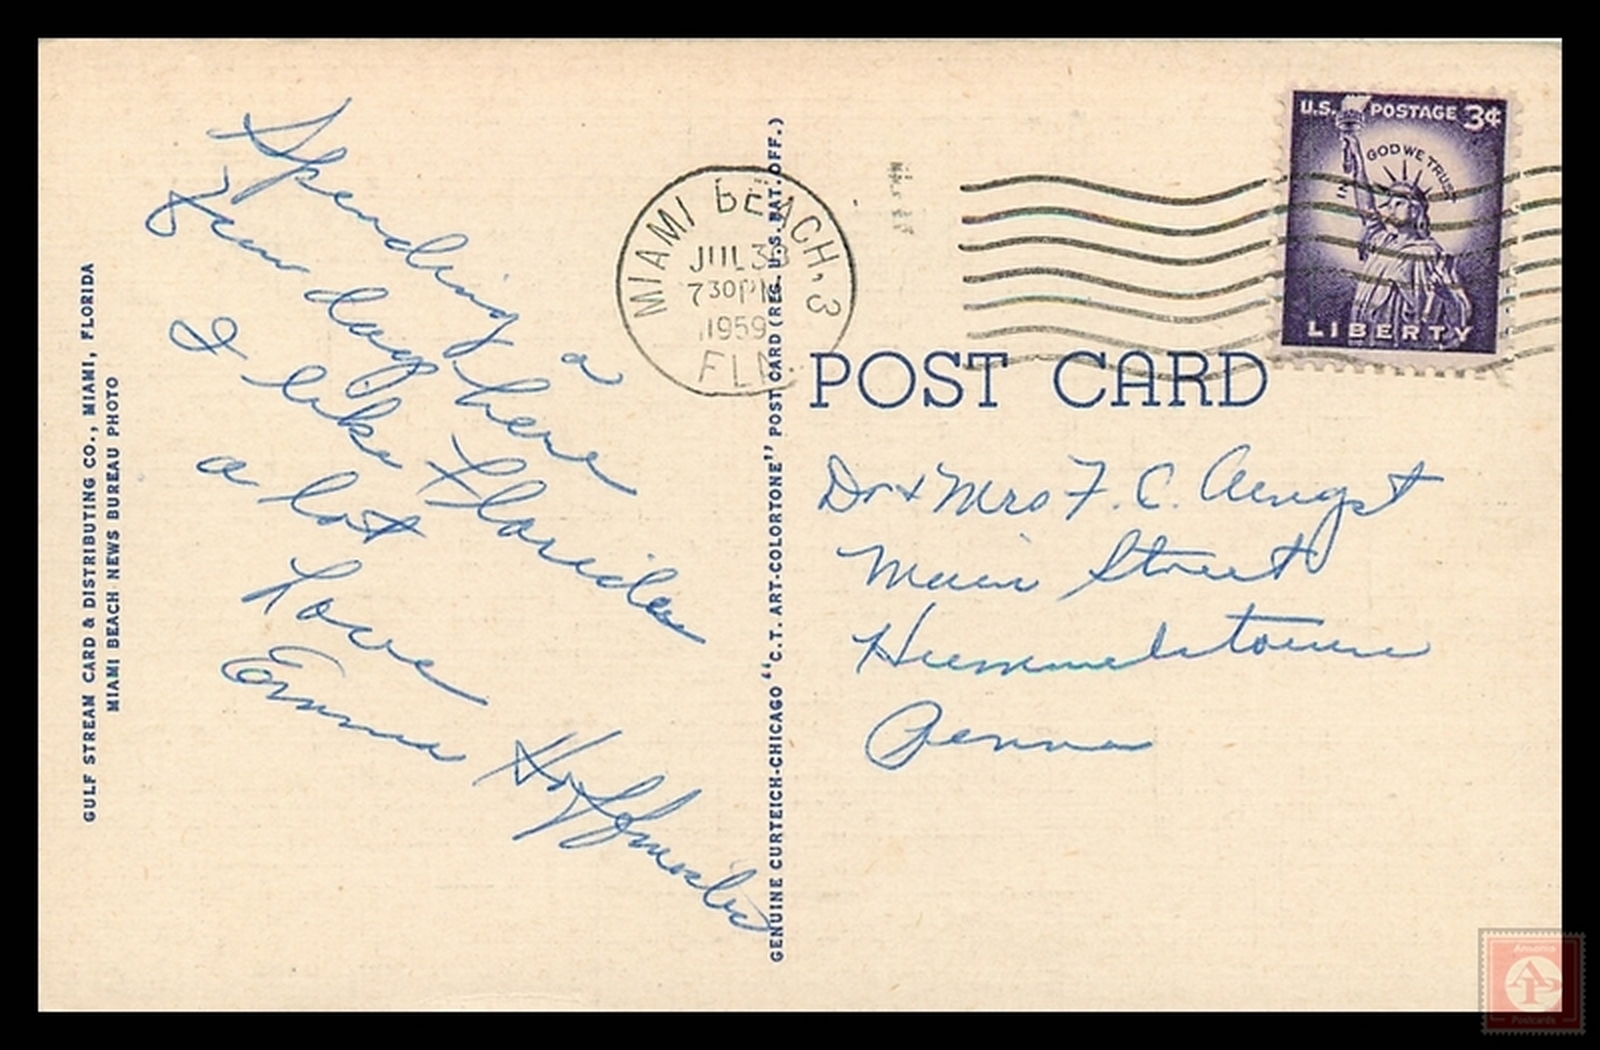 Spending a
few days here
I like Florida
a lot
Love
Emma
GULF STREAM CARD & DISTRIBUTING CO., MIAMI, FLORIDA
MIAMI BEACH NEWS BUREAU PHOTO
GENUINE CURTEICH-CHICAGO "C.T. ART-COLORTONE" POST CARD (REG. U.S. PAT. OFF.)
MIAMI BEACH, 3
JUL 30
7 30 PM
1959
FLA.
U.S. POSTAGE 3¢
IN GOD WE TRUST
LIBERTY
POST CARD
Dr & Mrs F. C.
Main Street
Hummelstown
Penna
Ansonia
AP
Postcards